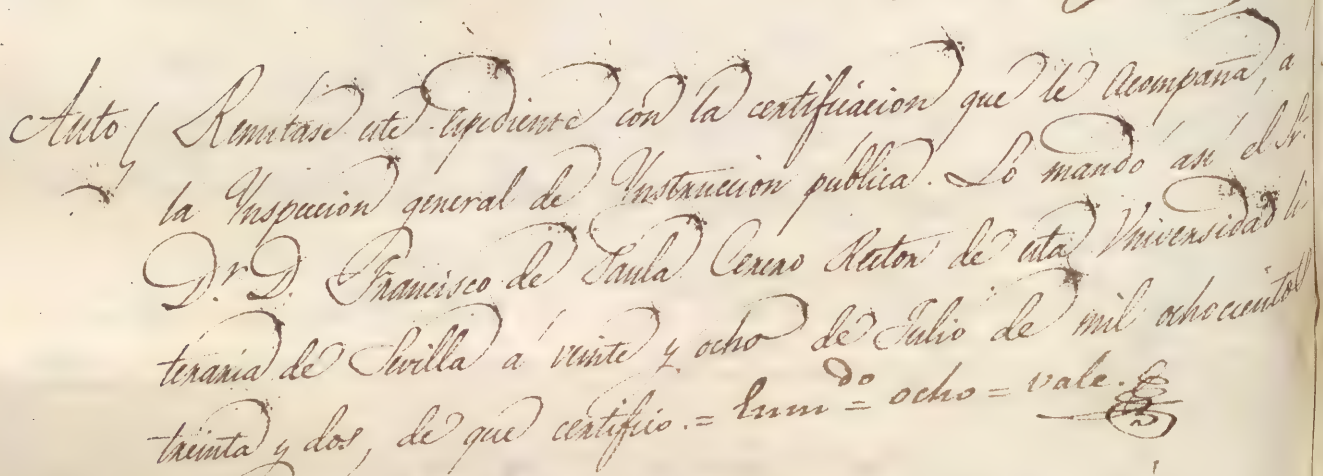 Auto / Remitase este expediente con la certificacion que le acompaña, a
la Inspeccion general de Instruccion pública. Lo mandó así el Sr.
D.r D. Francisco de Paula Cerero Rector de esta Universidad li-
teraria de Sevilla á veinte y ocho de Julio de mil ochocientos
treinta y dos, de que certifico. = Enmdo = ocho = vale.